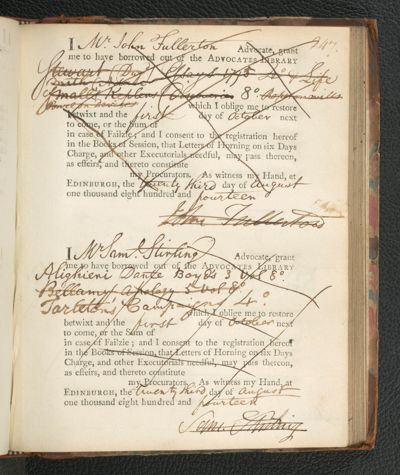 247.
I Mr John Fullerton Advocate, grant
me to have borrowed out of the ADVOCATES LIBRARY
Stewart (Dug) Essays 4º & Life
8º
which I oblige me to restore
betwixt and the first day of October next
to come, or the Sum of
in case of Failzie; and I consent to the registration hereof
in the Books of Session, that Letters of Horning on six Days
Charge, and other Executorials needful, may pass thereon,
as effeirs, and thereto constitute
Procurators. As witness my Hand, at
EDINBURGH, the twenty third day of August
one thousand eight hundred and fourteen
John Fullerton
I Mr Saml. Stirling Advocate, grant
me to have borrowed out of the ADVOCATES LIBRARY
Alighieri Dante Boyds 3 vol 8º
Bellamy apology 5 vol 8º
Tarletons Campaigns 4º.
which I oblige me to restore
betwixt and the first day of October next
to come, or the Sum of
in case of Failzie; and I consent to the registration hereof
in the Books of Session, that Letters of Horning on six Days
Charge, and other Executorials needful, may pass thereon,
as effeirs, and thereto constitute
my Procurators. As witness my Hand, at
EDINBURGH, the twenty third day of August
one thousand eight hundred and fourteen
Saml Stirling